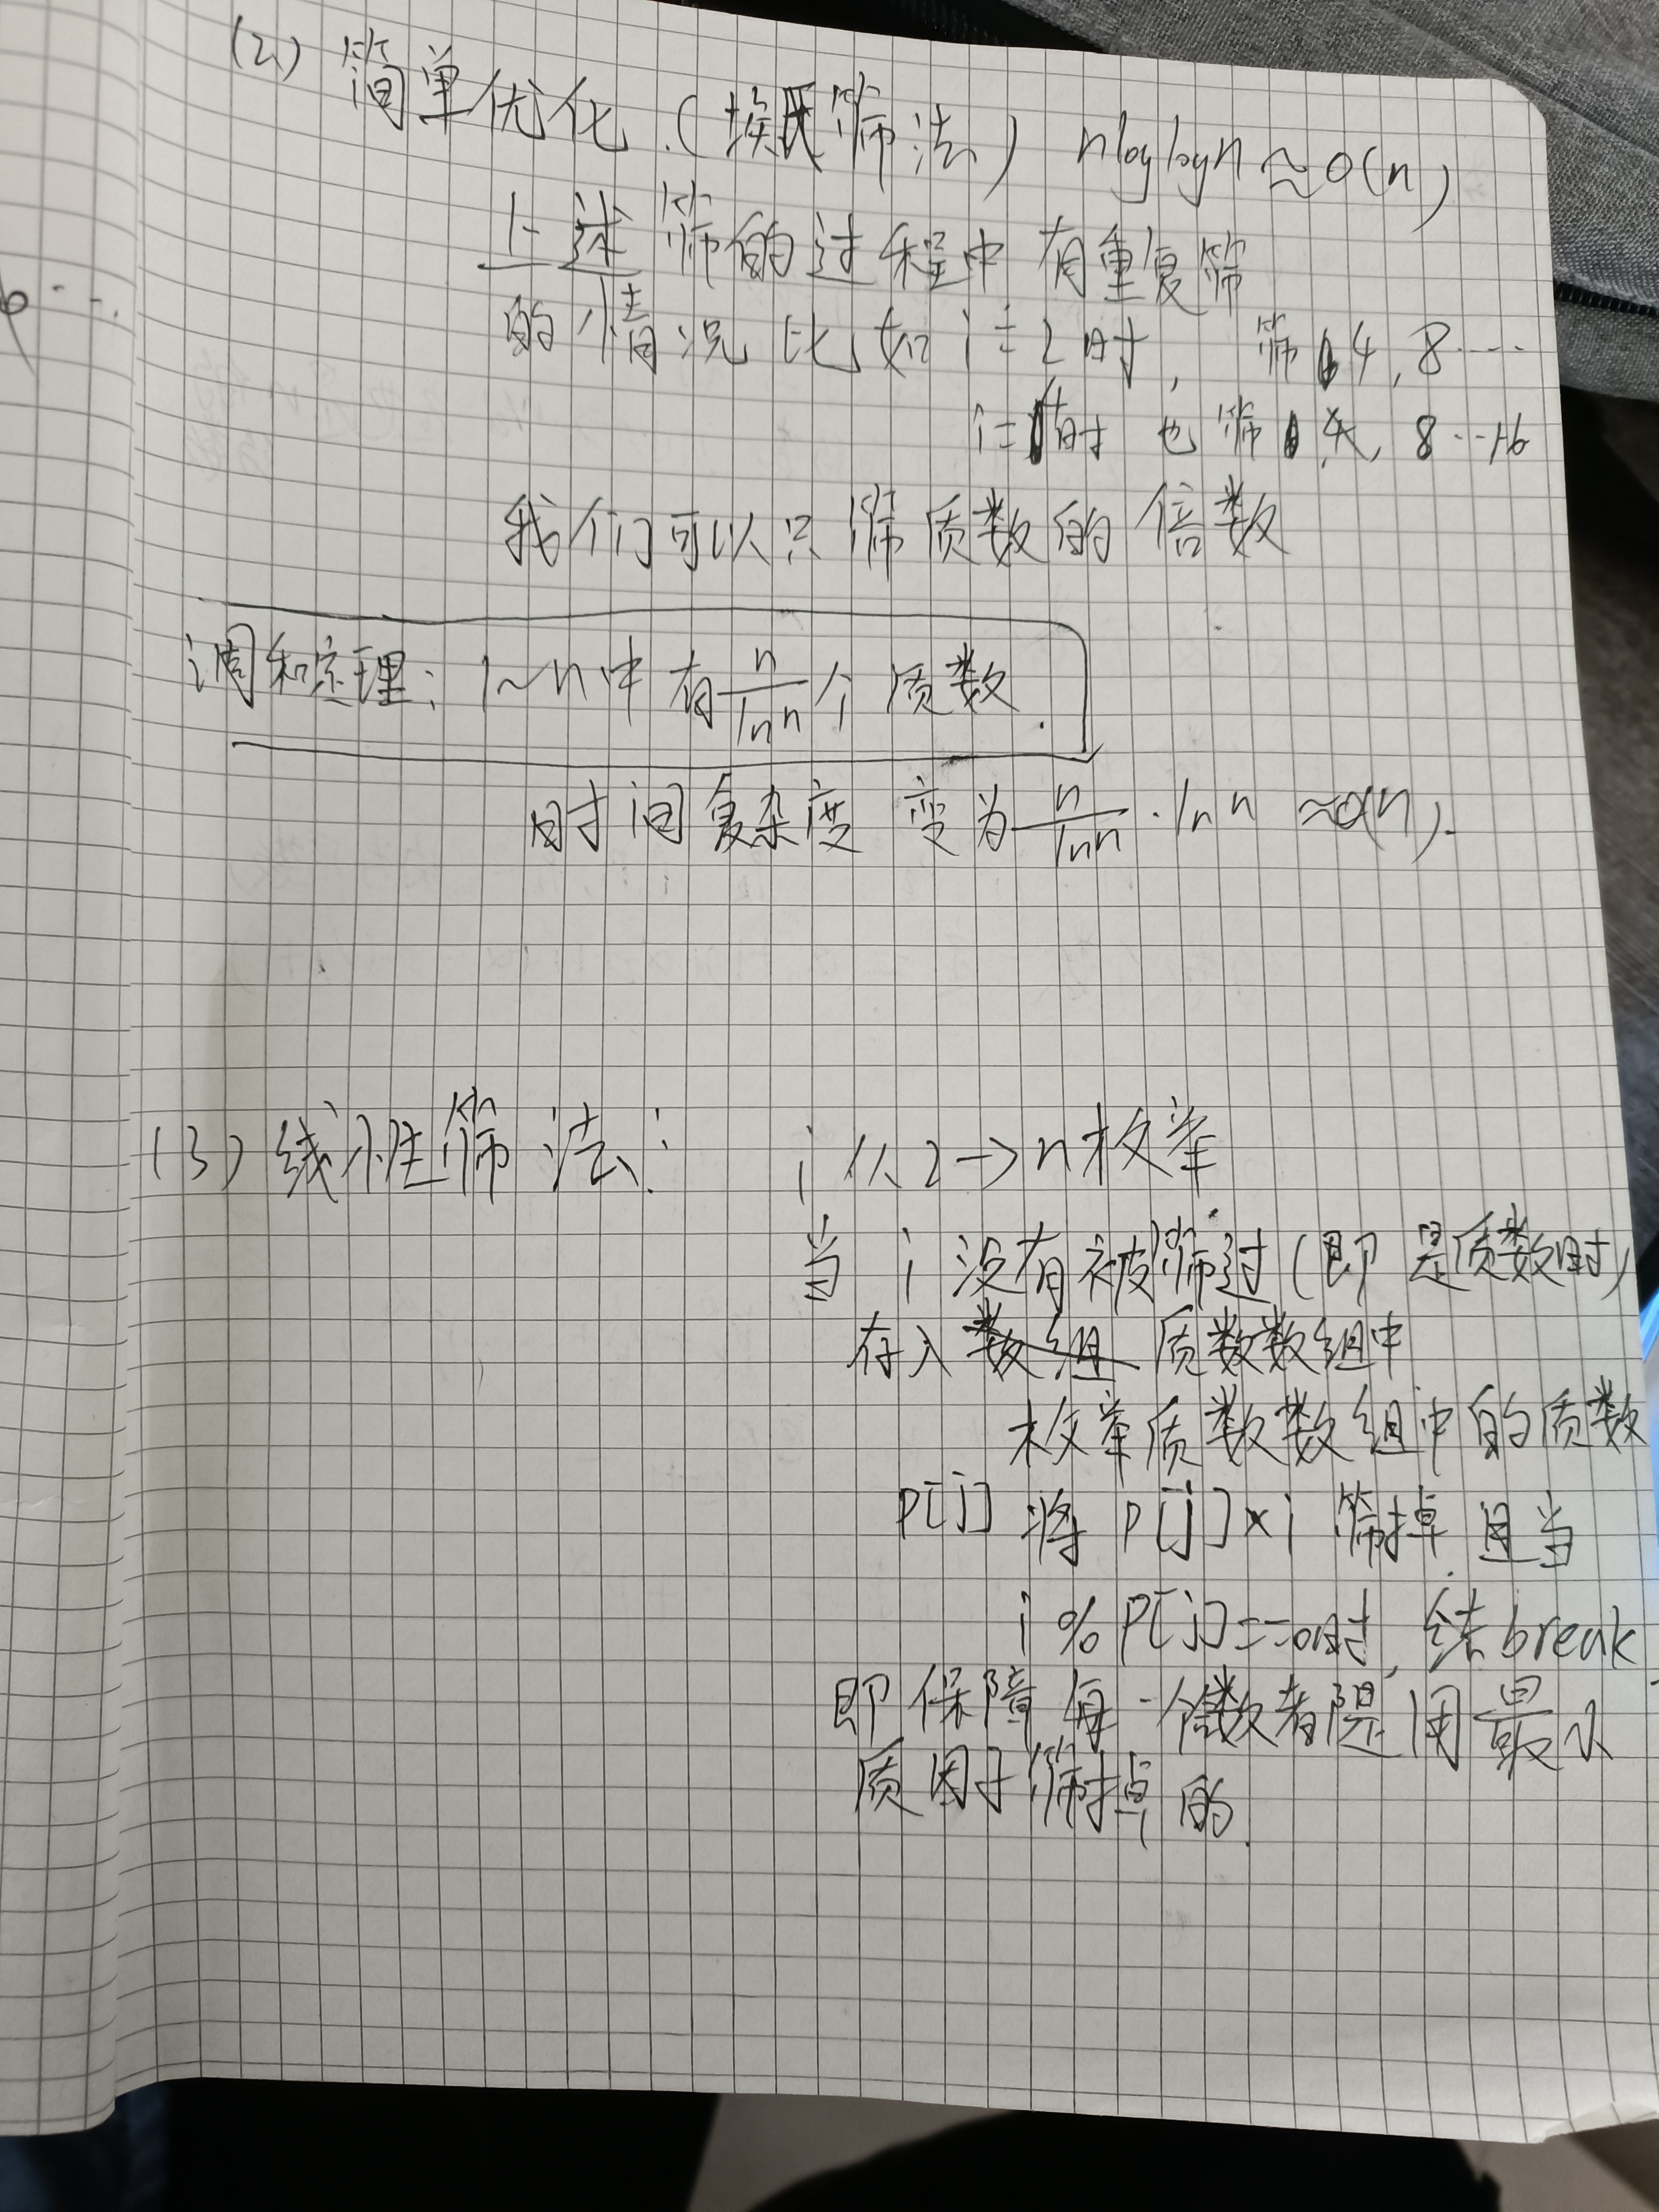 (2) 简单优化.(埃氏筛法) nloglogn ≈ O(n)
上述筛的过程中有重复筛
的情况 比如 i=2时, 筛 4,8....
i= 时 也筛 , 8...16
我们可以只筛质数的倍数
调和定理: 1~n中有 n/lnn 个质数.
时间复杂度 变为 n/lnn · lnn ≈O(n).
(3) 线性筛法: i 从2→n枚举
当 i 没有被筛过(即是质数时)
存入 质数数组中
枚举质数数组中的质数
P[j] 将 P[j]×i 筛掉. 且当
i % P[j]==0时, break
即保障每一个数都是用最小
质因子筛掉的.